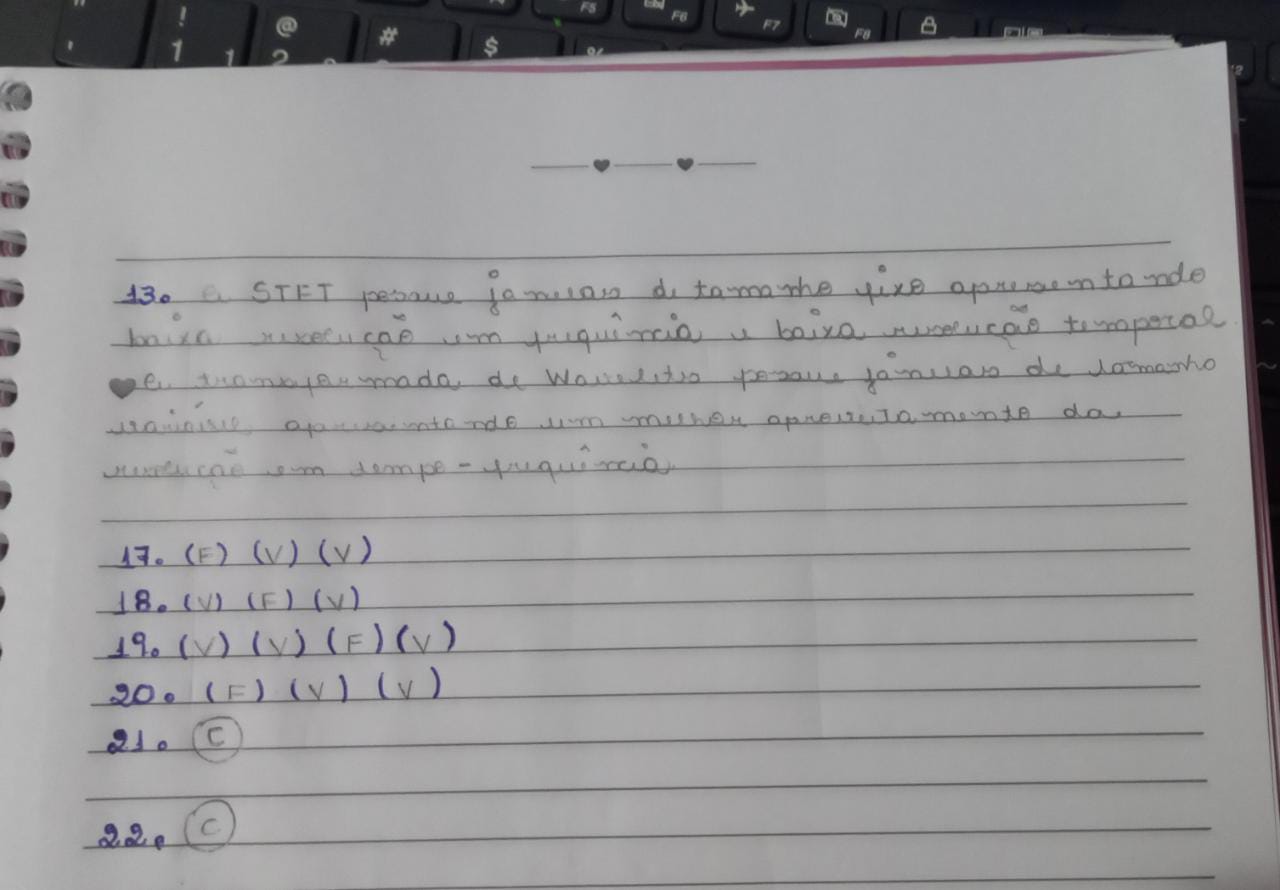 " F5 F6 F7 F8
! @ # $ %
' 1 1 2
13. a STFT possue janelas de tamanho fixo apresentando
baixa resolução em frequência e baixa resolução temporal.
a transformada de Wavelets possue janelas de tamanho
variável, apresentando um melhor aproveitamento da
resolução em tempo - frequência.
17. (F) (V) (V)
18. (V) (F) (V)
19. (V) (V) (F) (V)
20. (F) (V) (V)
21. C
22. C